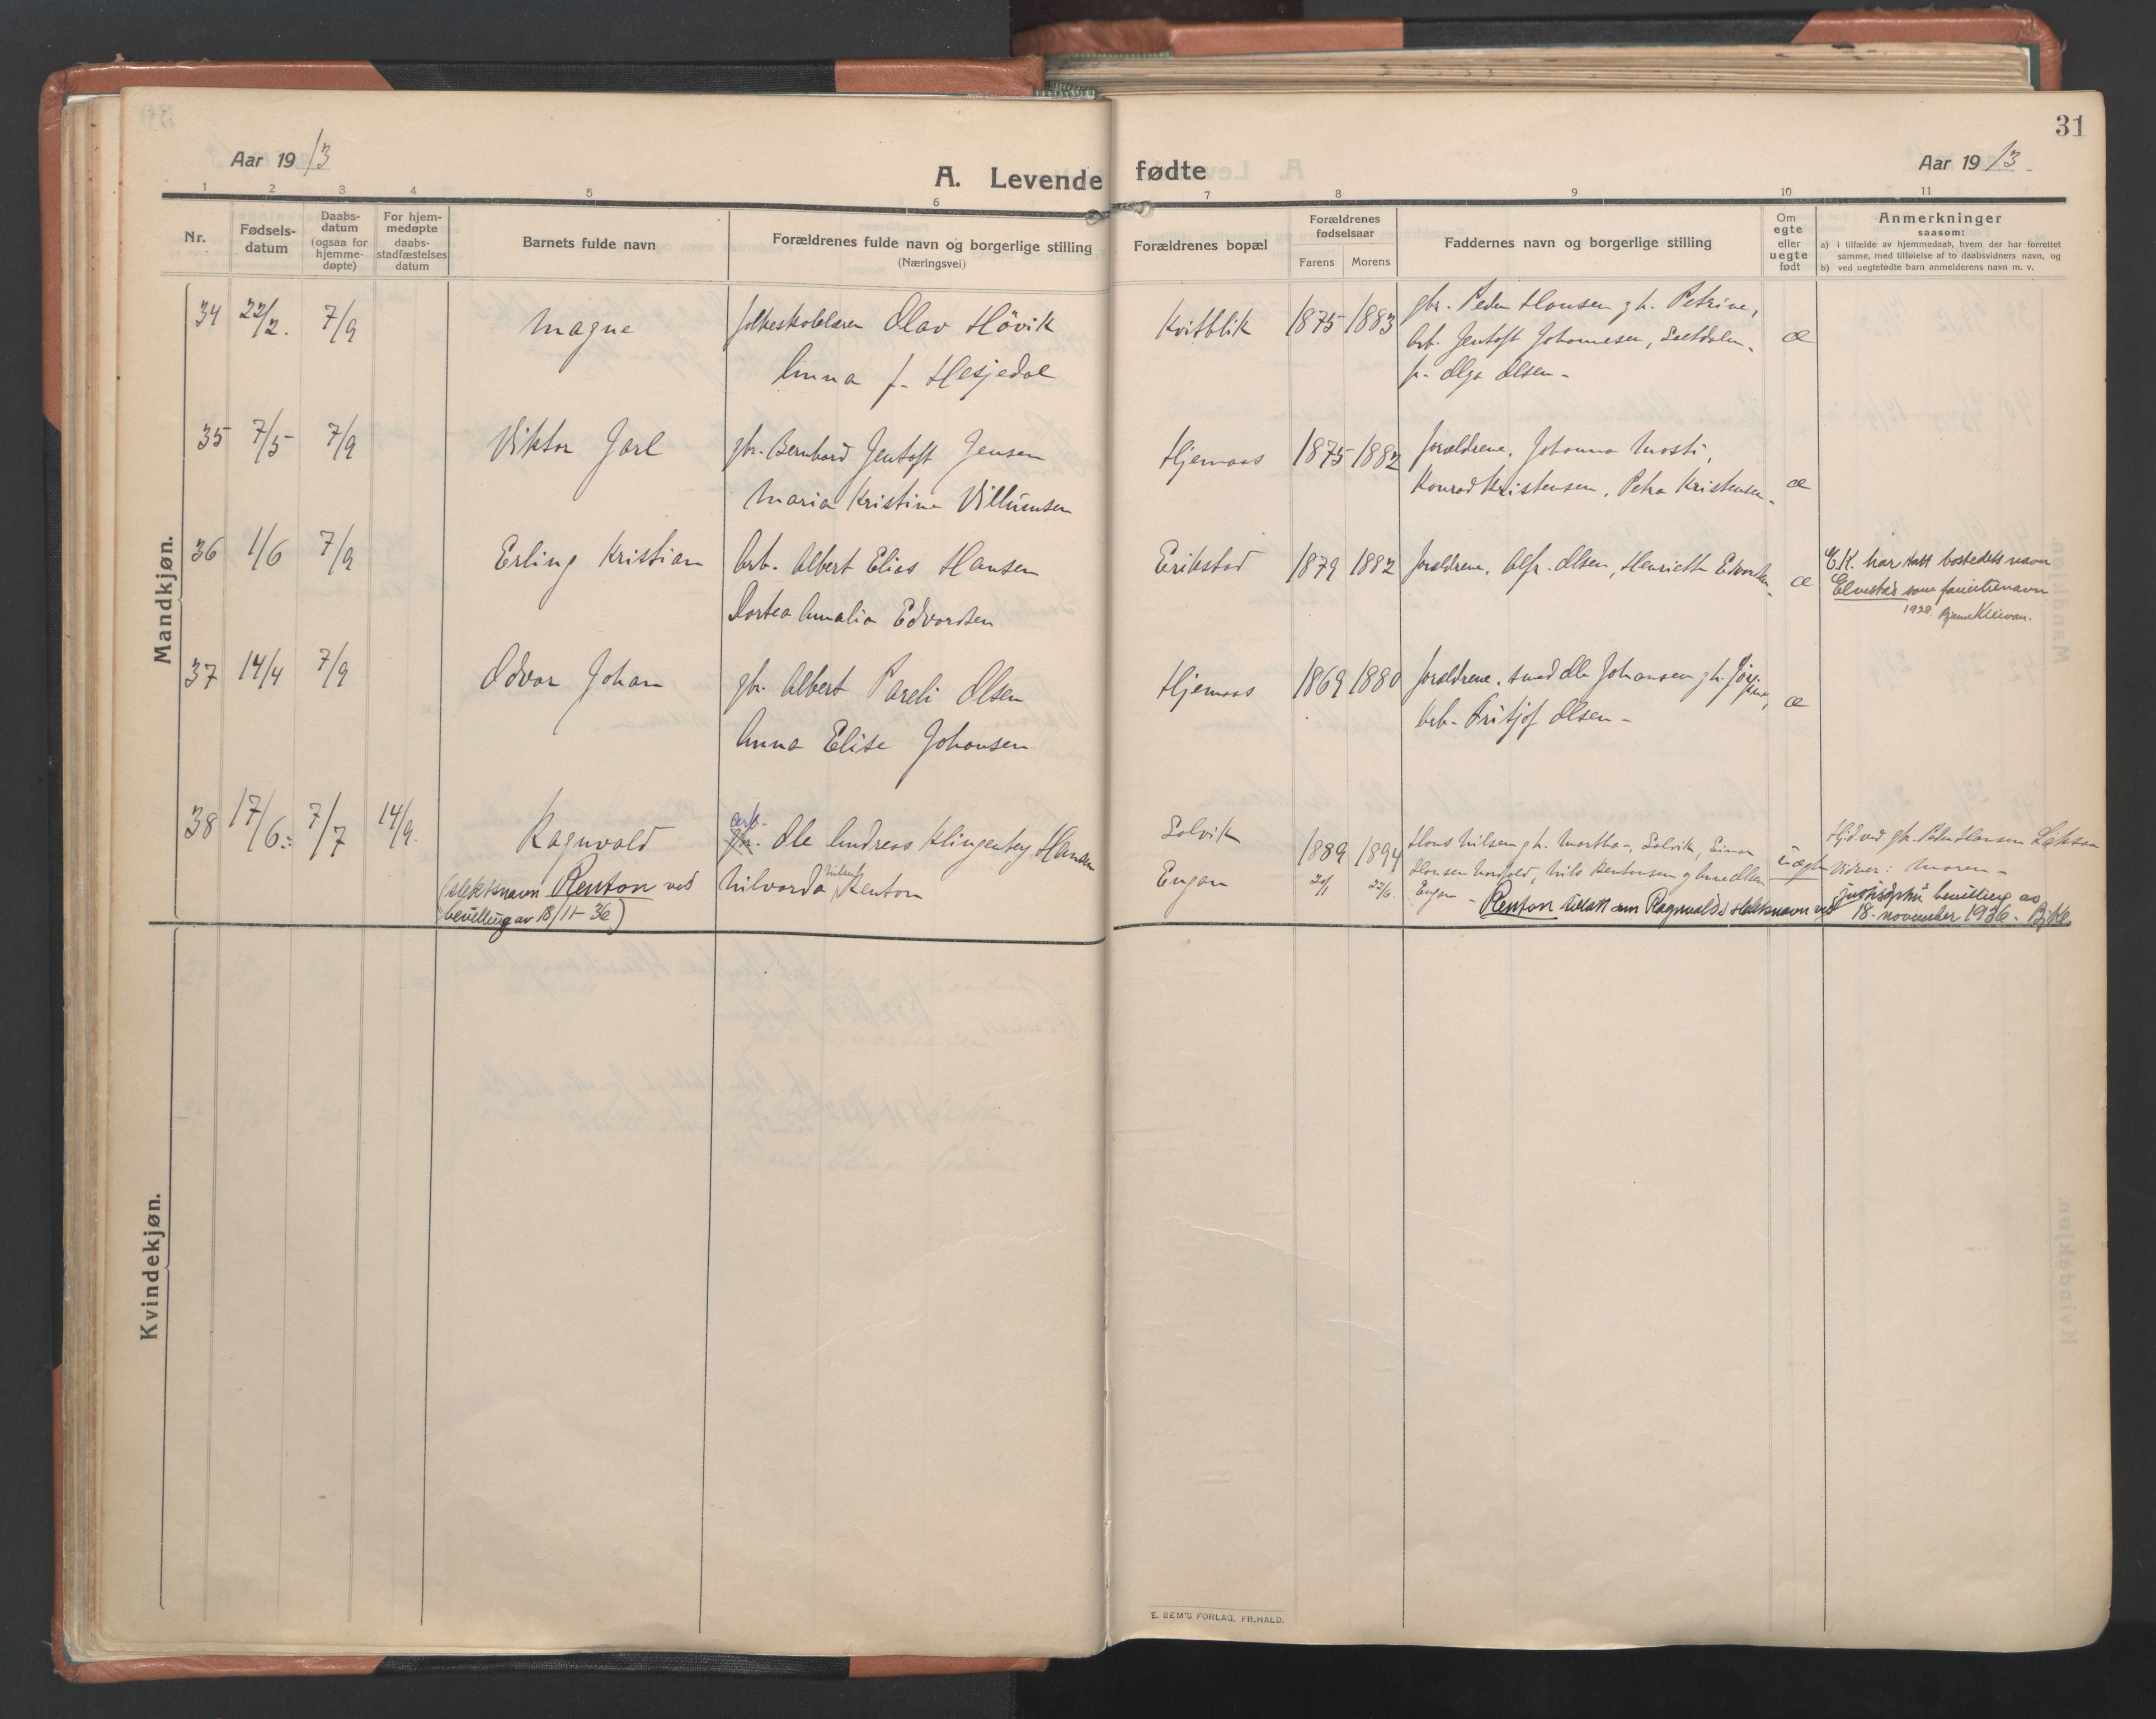 31
Aar 1913
A. Levende fødte
Aar 1913
1 2 3 4 5 6 7 8 9 10 11
Nr.
Fødsels-
datum
Daabs-
datum
(ogsaa for
hjemme-
døpte)
For hjem-
medøpte
daabs-
stadfæstelses
datum
Barnets fulde navn
Forældrenes fulde navn og borgerlige stilling
(Næringsvei)
Forældrenes bopæl
Forældrenes
fødselsaar
Farens Morens
Faddernes navn og borgerlige stilling
Om
egte
eller
uegte
født
Anmerkninger
saasom:
a) i tilfælde av hjemmedaab, hvem der har forrettet
samme, med tilføielse af to daabsvidners navn, og
b) ved uegtefødte barn anmelderens navn m. v.
Mandkjøn.
34 22/2. 7/9 Magne folkeskolelærer Olav Hövik Kvitblik 1875 1883 gbr. Peder Hansen g h. Petrine, æ
Anna f. Hesjedal arb. Jentoft Johannesen, Sætdalen,
p. Olga Olsen -
35 7/5 7/9 Viktor Jarl gbr. Bernhard Jentoft Jensen Hjemaas 1875 1882 forældrene, Johanna Mosti, æ
Maria Kristine Villumsen Konrad Kristensen, Petra Kristensen.
36 1/6 7/9 Erling Kristian Arb. Albert Elias Hansen Erikstad 1879 1882 forældrene, Alfr. Olsen, Henriette Edvardsen. æ
Dortea Amalia Edvardsen
E. K. har tatt bostedets navn
Elvestad som familienavn
1928. Bjarne Kleivan.
37 14/4 7/9 Odvar Johan gbr. Albert Pareli Olsen Hjemaas 1869 1880 forældrene, smed Ole Johansen g h. Jörgine, æ
Anna Elise Johansen arb. Fritjof Olsen -
38 17/6. 7/7 14/9. Ragnvald arb. gbr. Ole Andreas Klingenberg Hansen Solvik 1889 1894 Hans Nilsen g h. Martha, Solvik, Einar uægte
Nilvarda Nilsen Renton Engan 20/1 22/6. Hansen, Nils Rentonsen g Anne Olsen
Engan -
Hjd ved gbr. Peder Hansen
vidner: moren -
(slektsnavn Renton ved
bevilling av 18/11-36)
Renton tillatt som Ragnvalds slektsnavn ved justisdptn bevilling av
18. november 1936. Bj. Kl.
Kvindekjøn.
E. SEM'S FORLAG, FR.HALD.